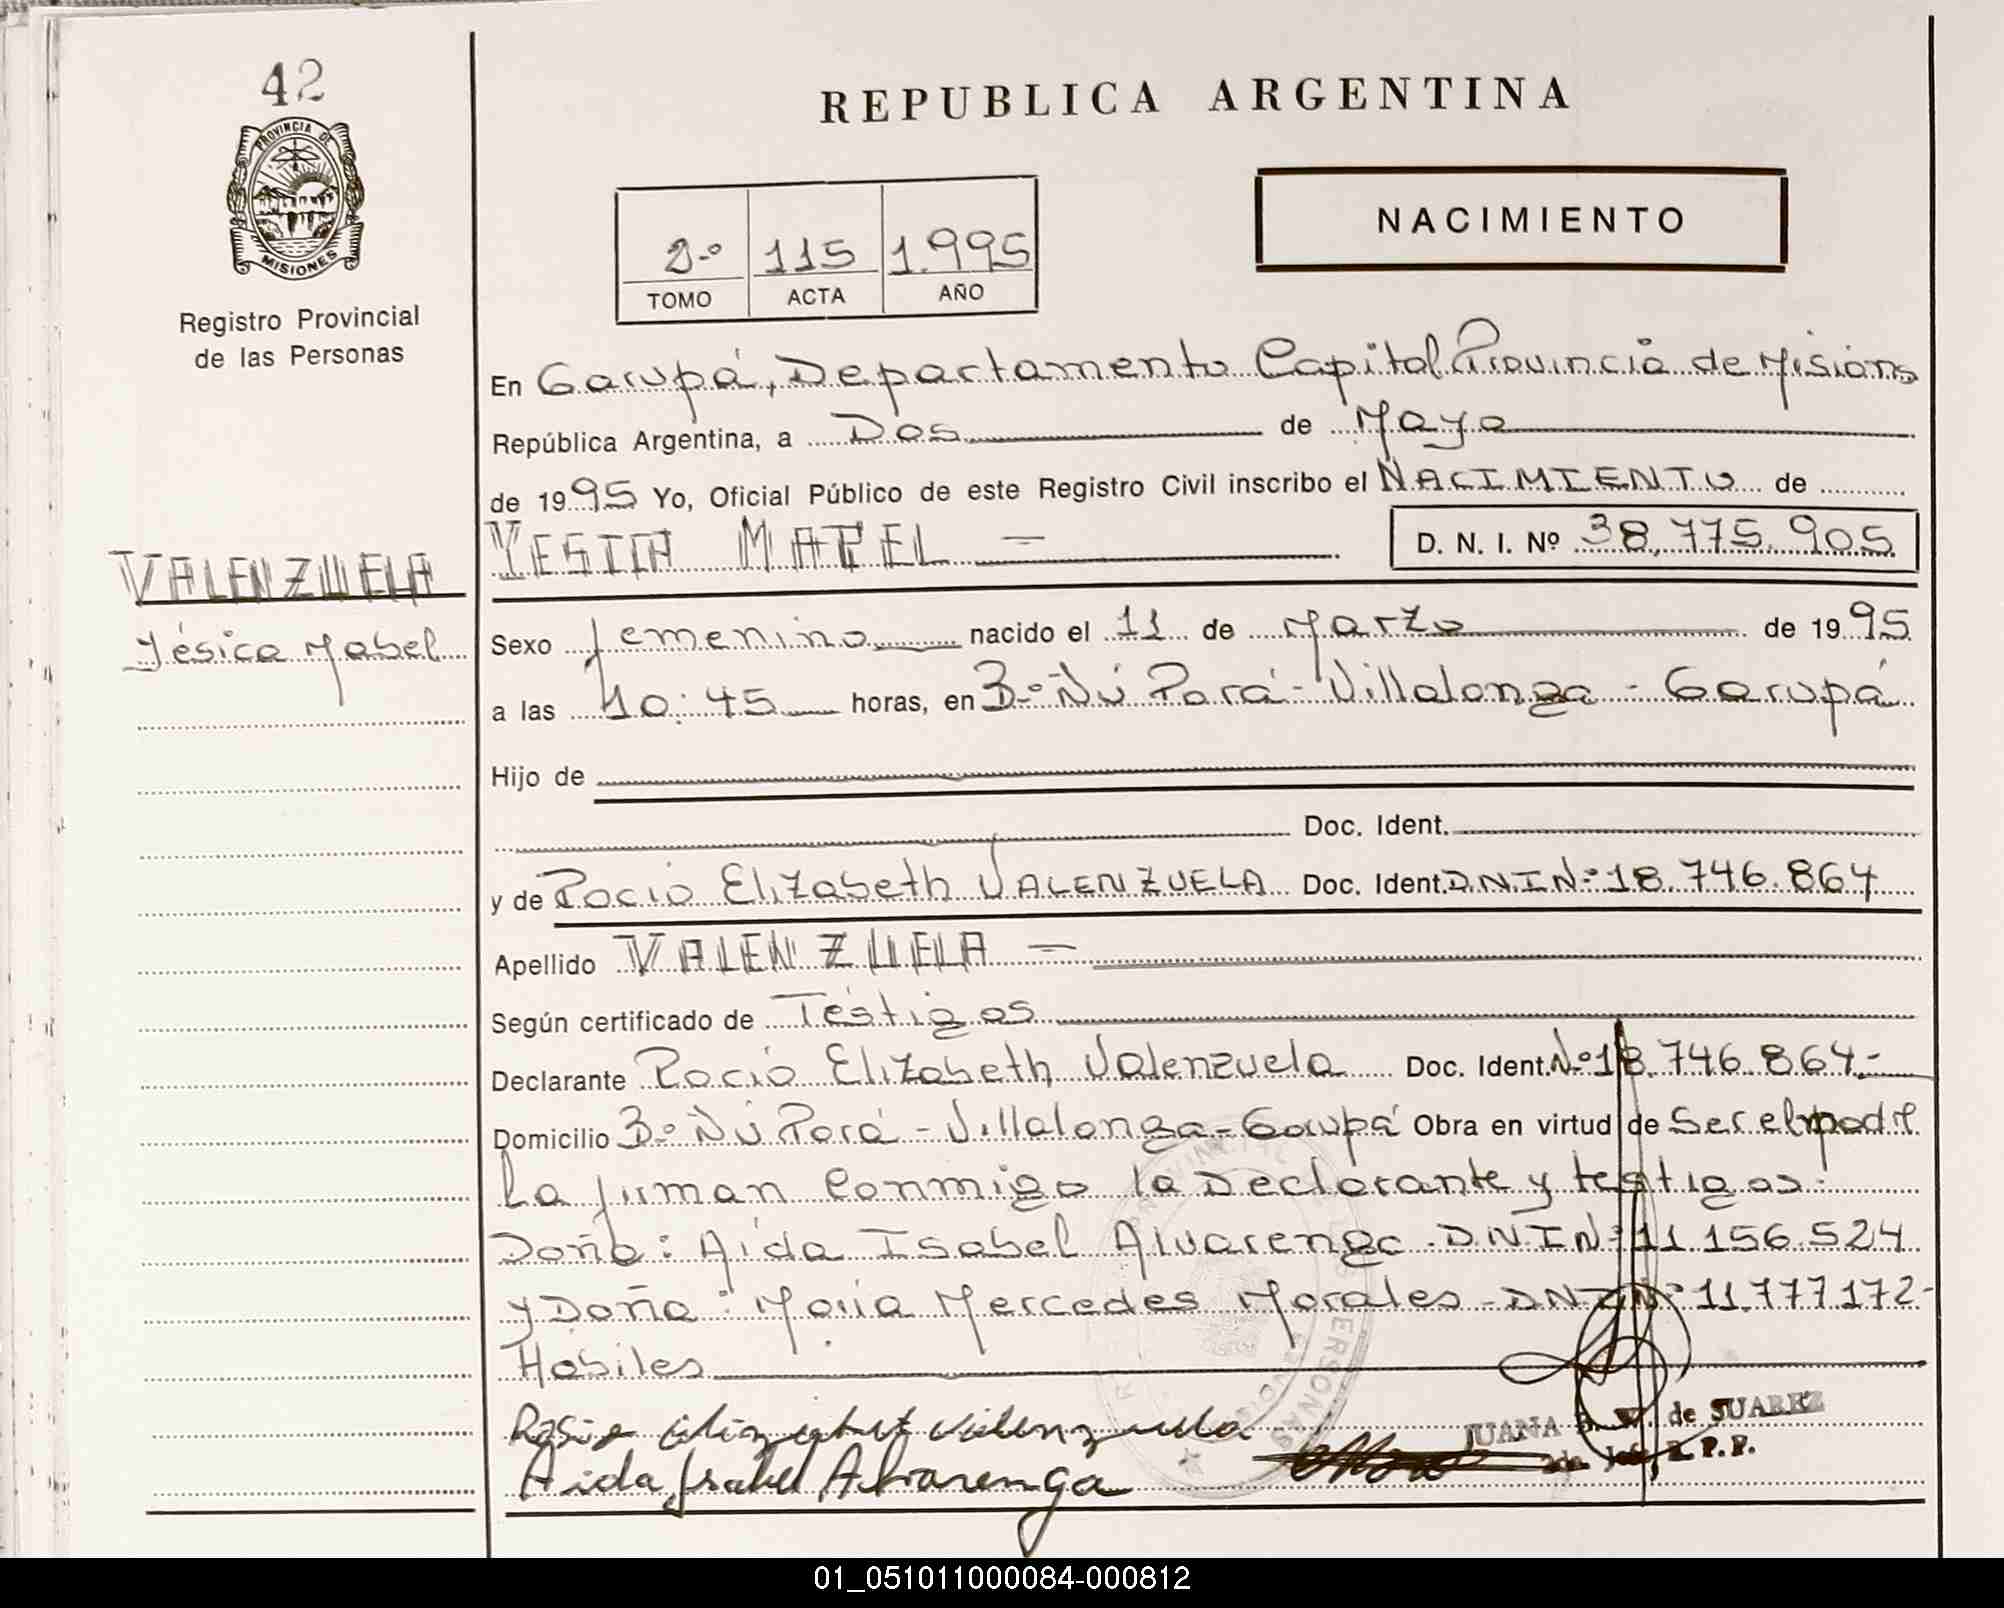 42
PROVINCIA DE
MISIONES
Registro Provincial
de las Personas
REPUBLICA ARGENTINA
NACIMIENTO
2º 115 1.995
TOMO ACTA AÑO
En Garupá, Departamento Capital Provincia de Misiones
República Argentina, a Dos de Mayo
de 1995 Yo, Oficial Público de este Registro Civil inscribo el NACIMIENTO de
YESICA MABEL — D. N. I. Nº 38.775.905
VALENZUELA
Yésica Mabel
Sexo femenino nacido el 11 de Marzo de 1995
a las 10:45 horas, en Bº Ñú Porá - Villalonga - Garupá
Hijo de
Doc. Ident.
y de Rocio Elizabeth VALENZUELA Doc. Ident. D.N.I.Nº 18.746.864
Apellido VALENZUELA —
Según certificado de Testigos
Declarante Rocio Elizabeth Valenzuela Doc. Ident. Nº 18.746.864.-
Domicilio Bº Ñú Porá - Villalonga - Garupá Obra en virtud de Ser el
La firman conmigo la Declarante y testigos:
Doña: Aida Isabel Alvarenga D.N.I.Nº 11.156.524
y Doña: María Mercedes Morales - D.N.I.Nº 11.777.172-
Habiles
Rosio Elizabet Valenzuela
JUANA de SUAREZ
R.P.P.
Aida Isabel Alvarenga
01_051011000084-000812